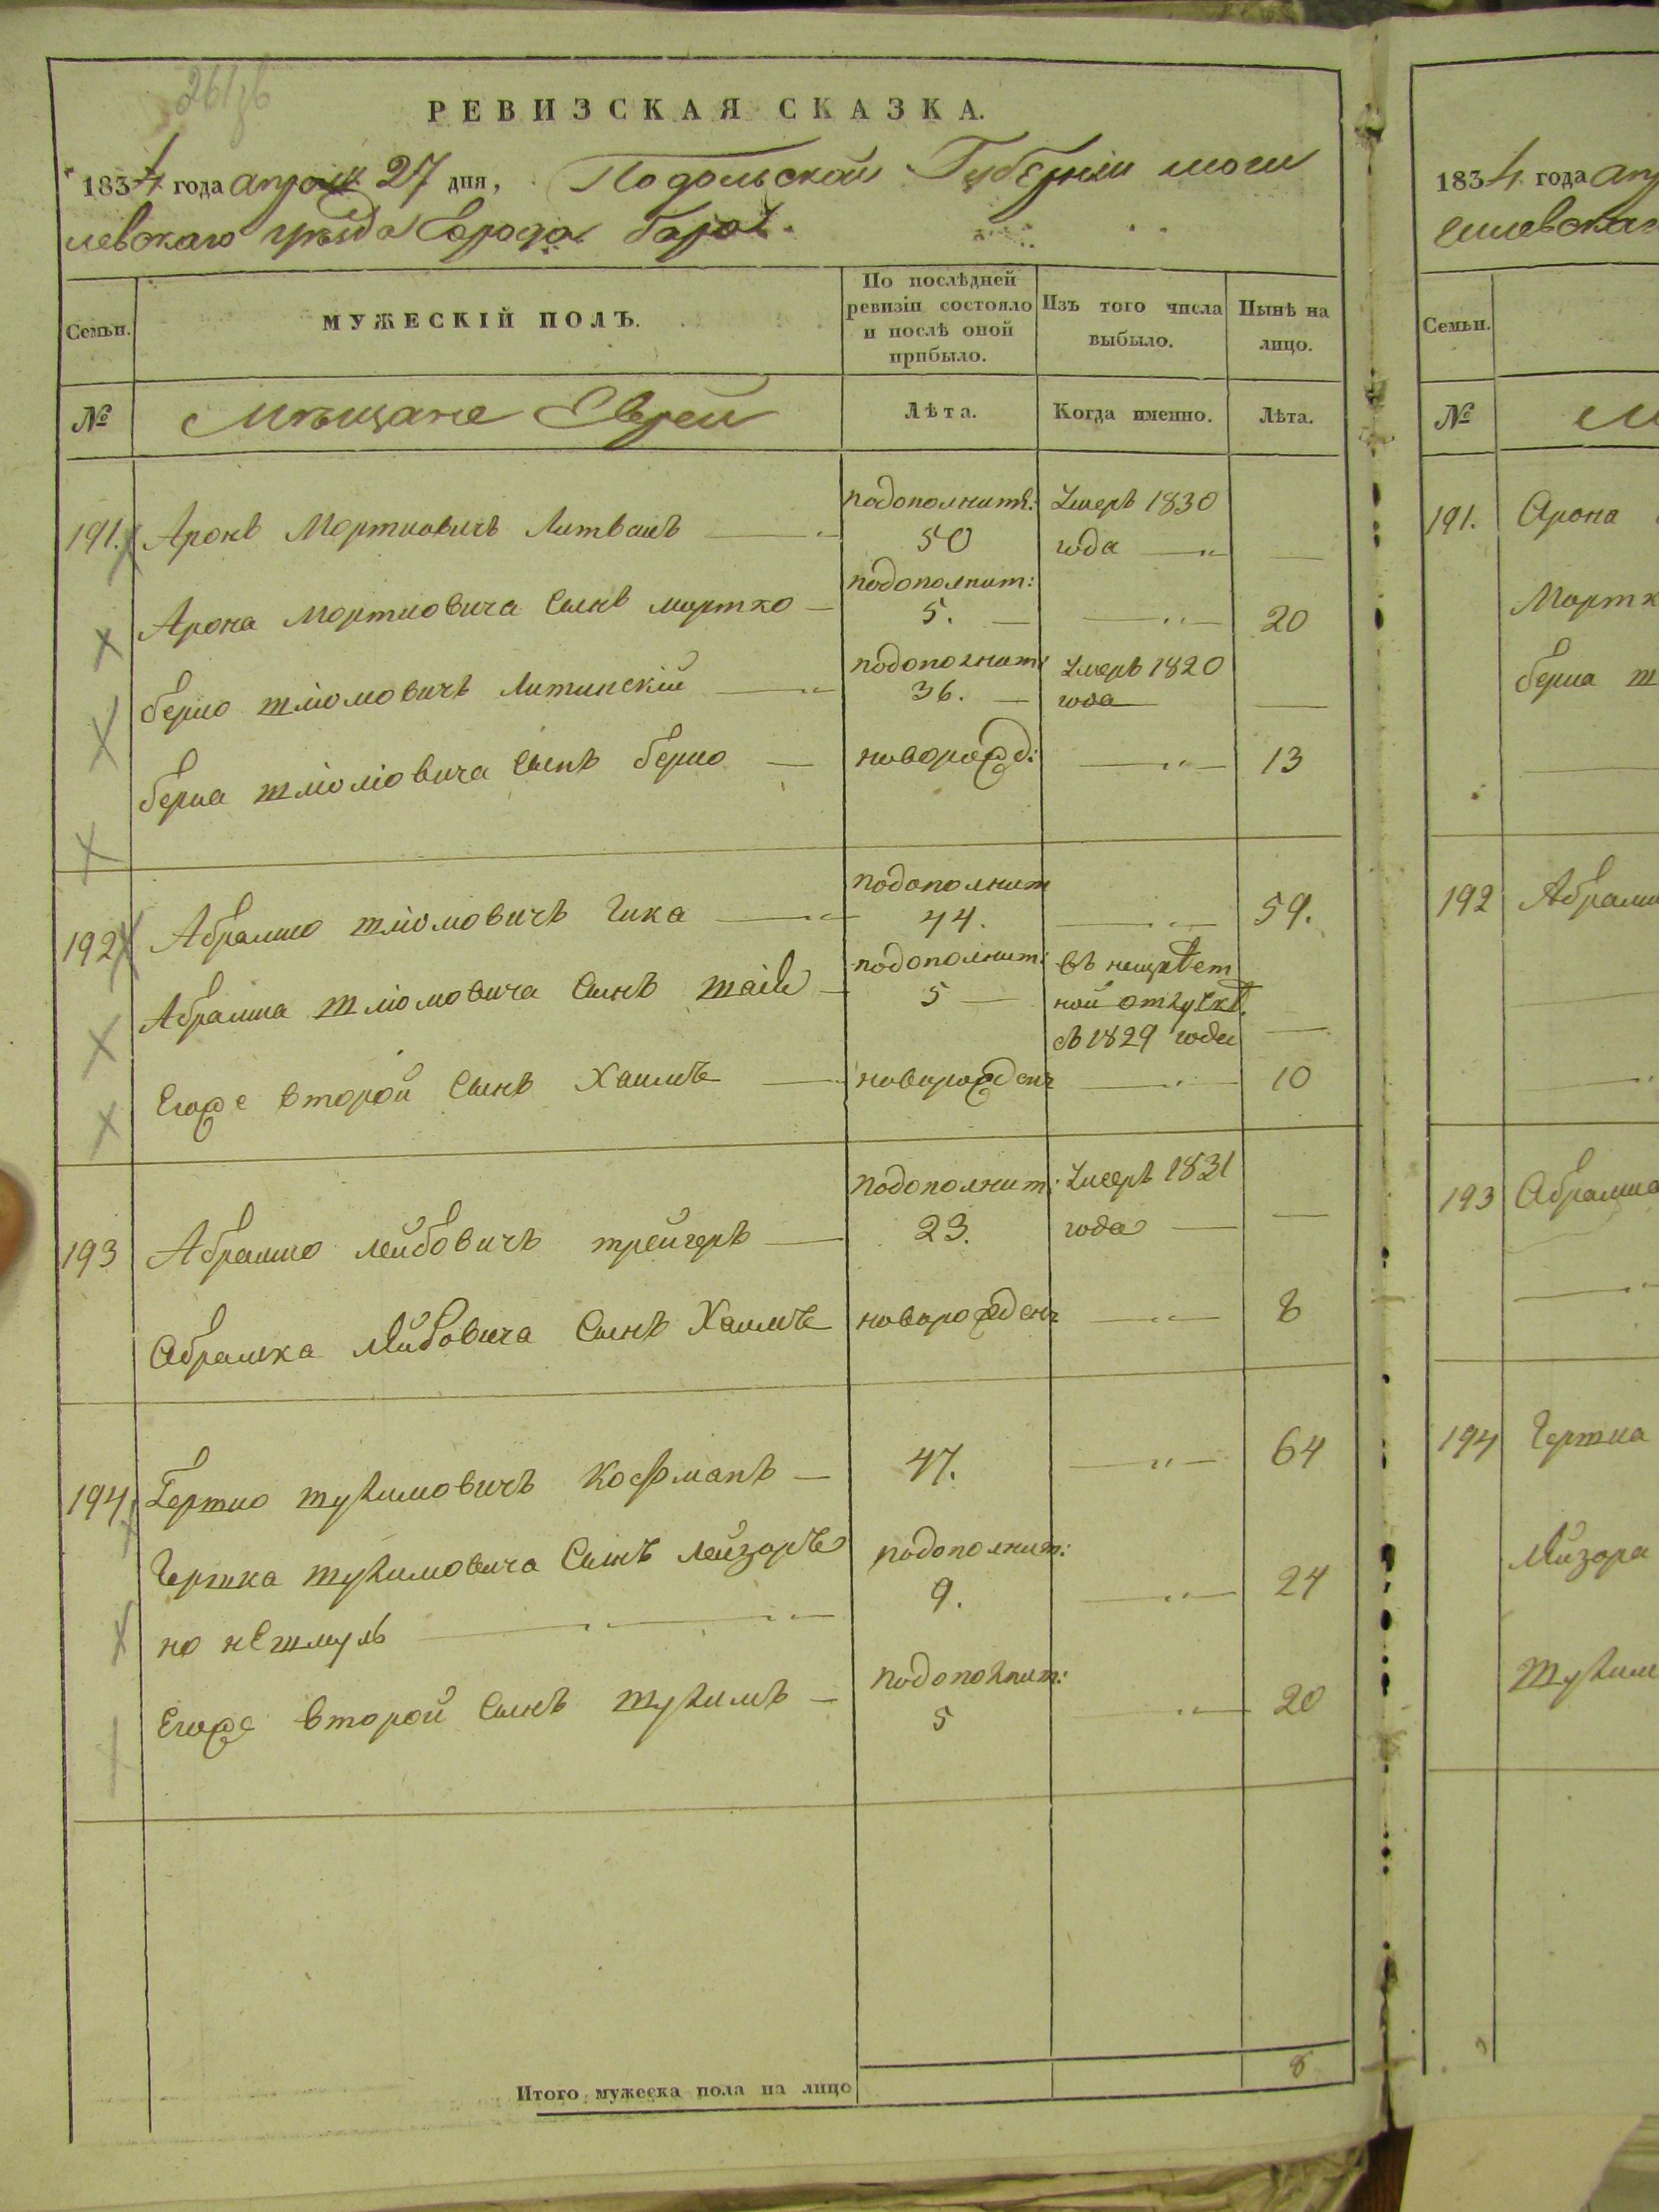 261 об
РЕВИЗСКАЯ СКАЗКА.
1834 года апреля 27 дня, Подольской Губерніи моги
левскаго уѣзда Города Бара
Семьи.
МУЖЕСКІЙ ПОЛЪ.
По послѣдней ревизіи состояло и послѣ оной прибыло.
Изъ того числа выбыло.
Нынѣ на лицо.
№ Мѣщане Евреи Лѣта. Когда именно. Лѣта.
191. Аронъ Мортковичъ Литвакъ — подополнит: 50 Умеръ 1830 года — —
Арона Мортковича Сынъ мортко — подополнит: 5. — — 20
берко шліомовичъ Литинскій — подополнит: 36. — Умеръ 1820 года —
берка шліомовича Сынъ берко — новорожд: — 13
192 Абрамко шліомовичъ Гика — подополнит 44. — 59.
Абрамка шліомовича Сынъ — подополнит: 5 —
въ ной отлучкѣ
съ 1829 года —
Егоже второй Сынъ Хаимъ — новорожденъ — 10
193 Абрамко лейбовичъ трейгеръ — подополнит: 23. Умеръ 1831 года — —
Абрамка Лейбовича Сынъ Хаимъ новорожденъ — 8
194. Гершко шулимовичъ Кофманъ — 47. — 64
Гершка шулимовича Сынъ лейзоръ подополнит: 9. — 24
шмуль —
Егоже второй Сынъ шулимъ — подополнит: 5 — 20
Итого мужеска пола на лицо 8
1834 года апр
Семьи.
№ М
191. Арона
Мортк
берка ш
192 Абрамк
193 Абрамка
194 Гершка
Лейзора
шулим